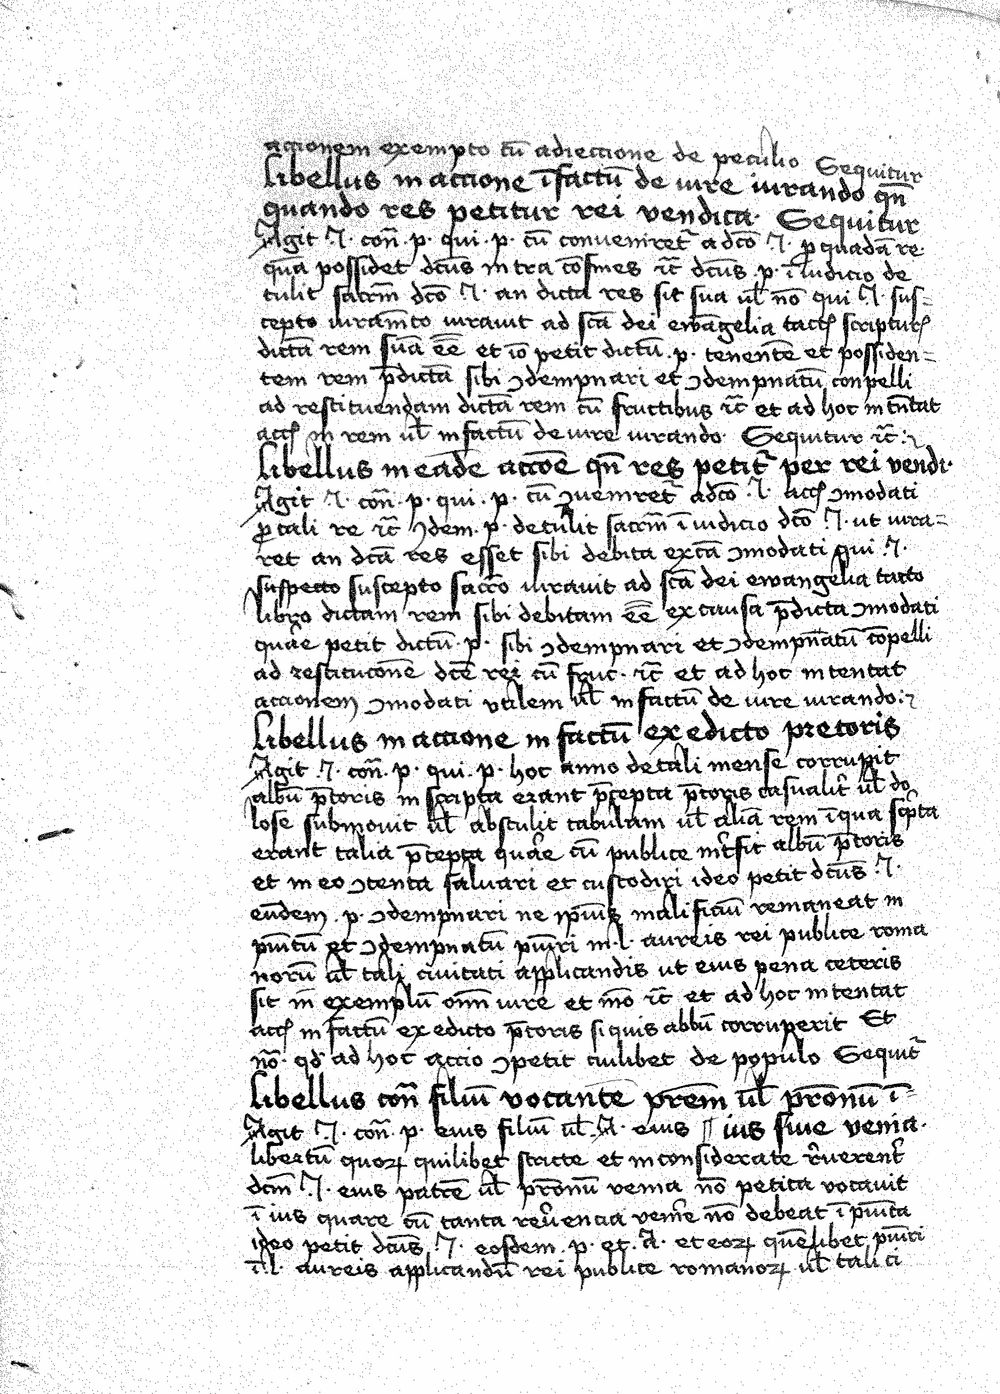 accionem exempto cū adieccione de peculio Sequitur
Libellus in accione ī factū de iure iurando qn̄
quando res petitur rei vendica· Sequitur
Agit .I. con̄ .p. qui .p. cū conveniret̄ a dc̄o .I. ꝑ quadā re
quā possidet dcūs intra cōfines ⁊c̄ dcūs .p. ī iudicio de
tulit sacrm̄ dc̄o .I. an dicta res sit sua ul̄ nō qui .I. sus=
cepto iuram̄to iuravit ad scā dei ewāgelia tactꝭ scripturꝭ
dictā rem suā eē et iō petit dictū .p. tenentē et possiden=
tem rem p̄dictā sibi ꝯdempnari et ꝯdempnatū conpelli
ad restituendam dictā rem cū fructibus ⁊c̄ et ad hoc intn̄tat
accꝭ in rem ul̄ in factū de iure iurando· Sequitur ⁊c̄
Libellus in eadē accōe qn̄ res petit̄ per rei vendi·
Agit .I. con̄ .p. qui .p. cū ꝯueniret̄ adc̄o .I. accꝭ ꝯmodati
ꝓ tali re ⁊c̄ ꝯdem .p. detulit sacrm̄ ī iudicio dc̄o .I. ut iura=
ret an dc̄a res esset sibi debita ex cā ꝯmodati qui .I.
suspecto suscepto sacr̄o iuravit ad scā dei ewangelia tacto
libro dictam rem sibi debitam eē ex causa p̄dicta ꝯmodati
quār̄e petit dictū .p. sibi ꝯdempnari et ꝯdempn̄atū cōpelli
ad restitucōnē dc̄e rei cū fruc· ⁊c̄ et ad hoc intentat
accionem ꝯmodati utilem ul̄ in factū de iure iurando
Libellus in accione in factū ex edicto pretoris
Agit .I. con̄ .p. qui .p. hoc anno de tali mense corrupit
albū p̄toris in scripta erant p̄cepta p̄toris casualit̄ ul̄ do
lose submovit ul̄ abstulit tabulam ul̄ aliā rem ī qua scp̄ta
erant talia p̄cepta quār̄e cū publice int̄sit albū p̄toris
et in eo ꝯtenta salvari et custodiri ideo petit dcūs .I.
eūdem .p. ꝯdempnari ne malificiū remaneat in
pun̄itū et ꝯdempnatū pun̄iri in .l. aureis rei publice roma
norū ul̄ tali civitati applicandis ut eius pena ceteris
sit in exemplū omn̄ iure et mō ⁊c̄ et ad hoc intentat
accꝭ in factū ex edicto p̄toris si quis abbū corruperit Et
nō· qd̄ ad hoc accio ꝯpetit cuilibet de populo Sequit̄
Libellus con̄ filiū vocantē prēm ul̄ prōnū ī=
Agit .I. con̄ .p. eius filiū ul̄ .A. eius || ius sine venia·
libertū quoꝝ quilibet stricte et inconsiderate
dcm̄ .I. eius patrē ul̄ prōnū venia nō petita vocavit
ī ius quare cū tanta rev̄encia venīe nō debeat ī pun̄ita
ideo petit dcūs .I. eosdem .p. et .A. et eoꝝ quēlibet pun̄iri
ī .l. aureis applicandū rei publice romanoꝝ ul̄ tali ci